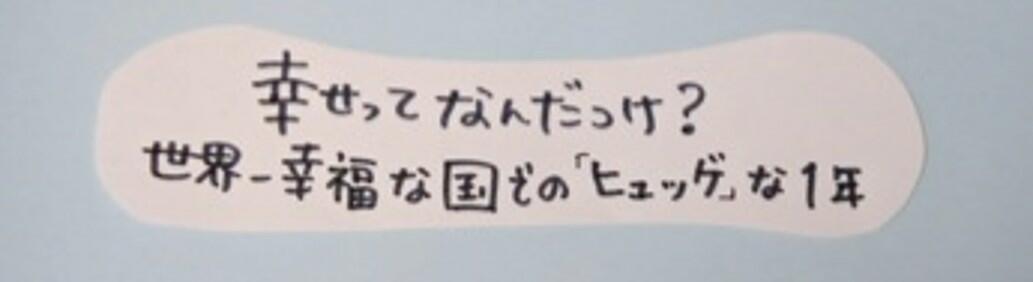 幸せってなんだっけ?
世界一幸福な国での「ヒュッゲ」な1年